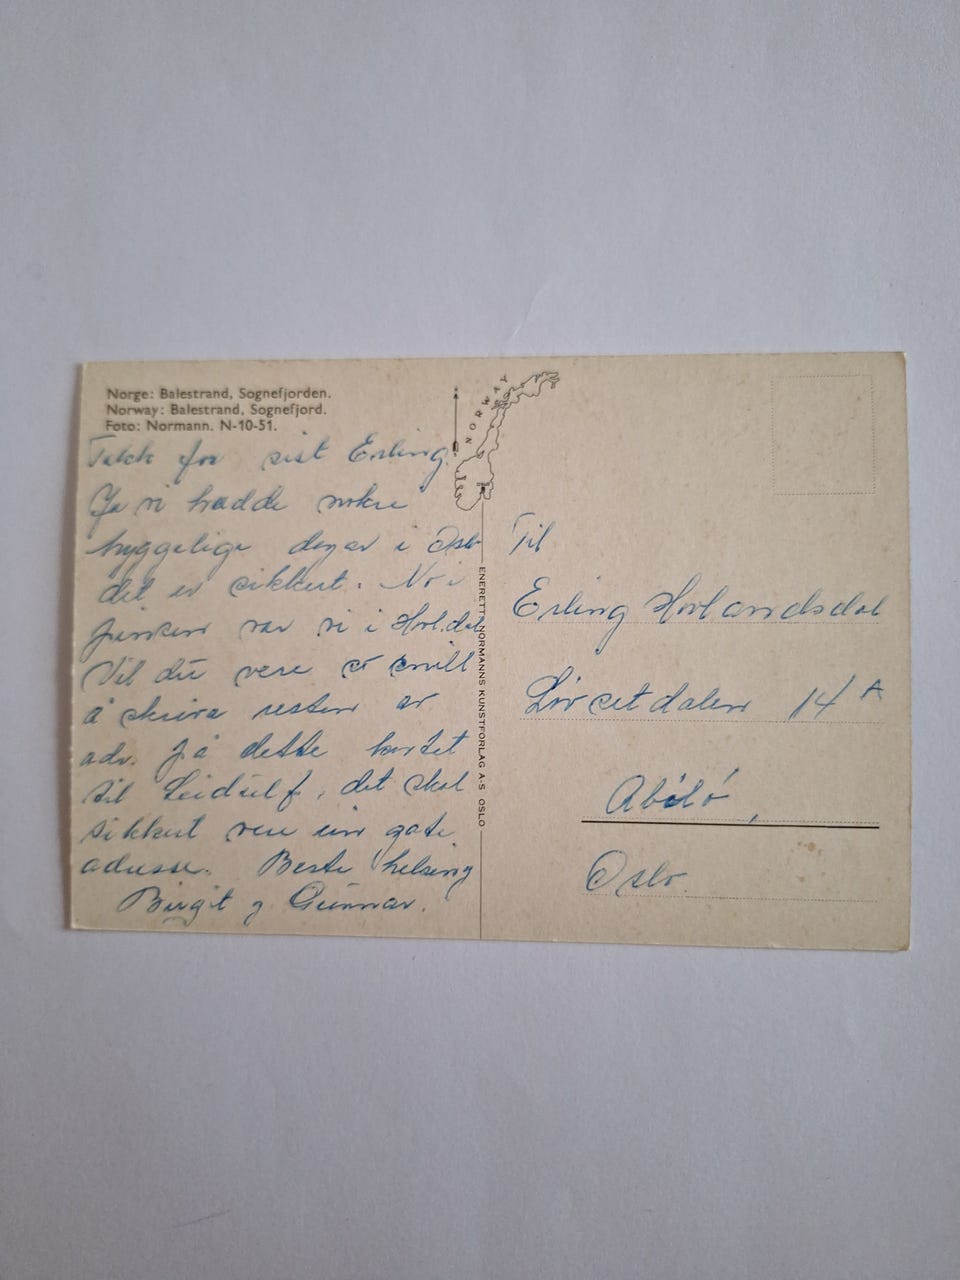 Norge: Balestrand, Sognefjorden.
Norway: Balestrand, Sognefjord.
Foto: Normann. N-10-51.
NORWAY
OSLO
Takk for sist Erling.
Ja vi hadde nokre
hyggelige dagar i Oslo
det er sikkert. No i
pinsen var vi i Hovl.dal
Vil du vere så snill
å skriva resten av
adr. på dette kortet
til Leidulf, det skal
sikkert vere ein gate
adresse. Beste helsing
Birgit og Gunnar.
ENERETT: NORMANNS KUNSTFORLAG A-S OSLO
Til
Erling Hovlandsdal
14 A
Oslo.